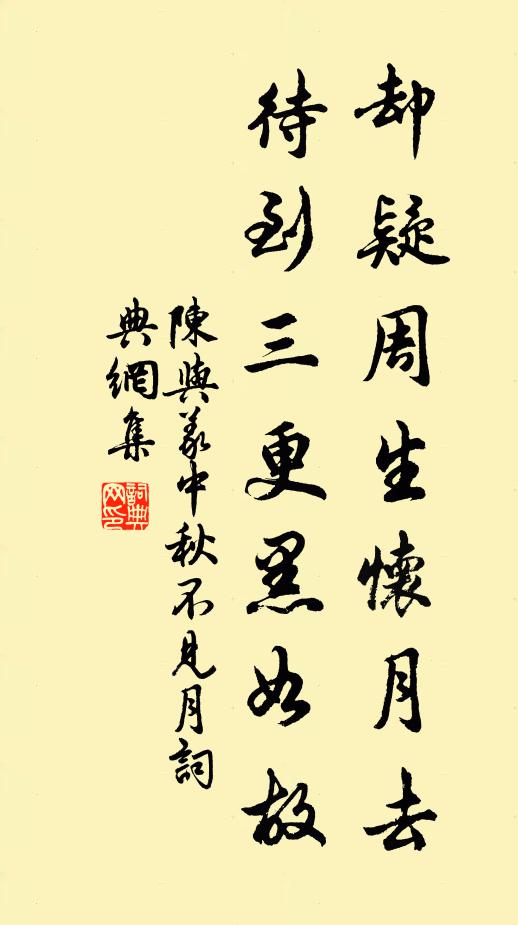 却疑周生懷月去
待到三更黑如故
陳與義中秋不見月詞
典網集
詞典
网印